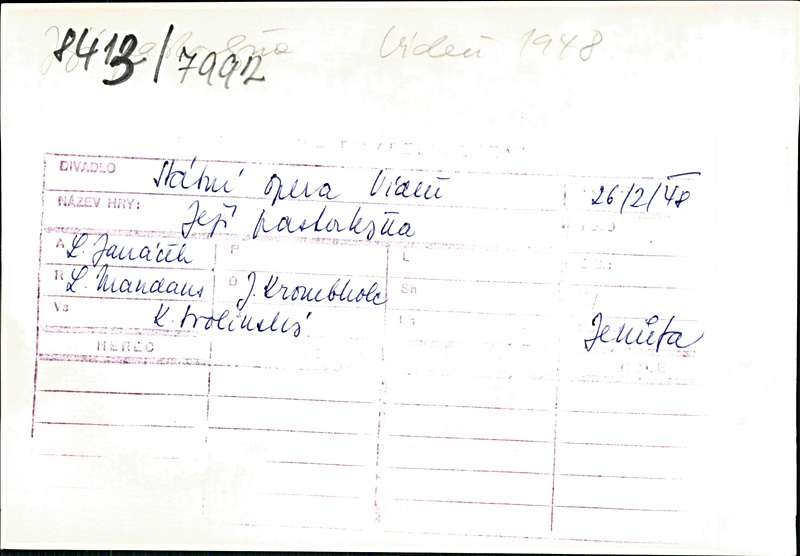 Vídeň 1948
8413/7992
DIVADLO Státní opera Vídeň 26/2/48
NÁZEV HRY: Její pastorkyňa
A L. Janáček P L
R L. Mandaus D J. Krombholc Sh
Vs K. Svolinský Jenůfa
HEREC